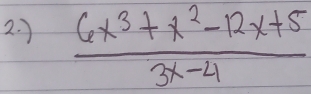 2.) 6x³ + x² - 12x + 5
3x - 4